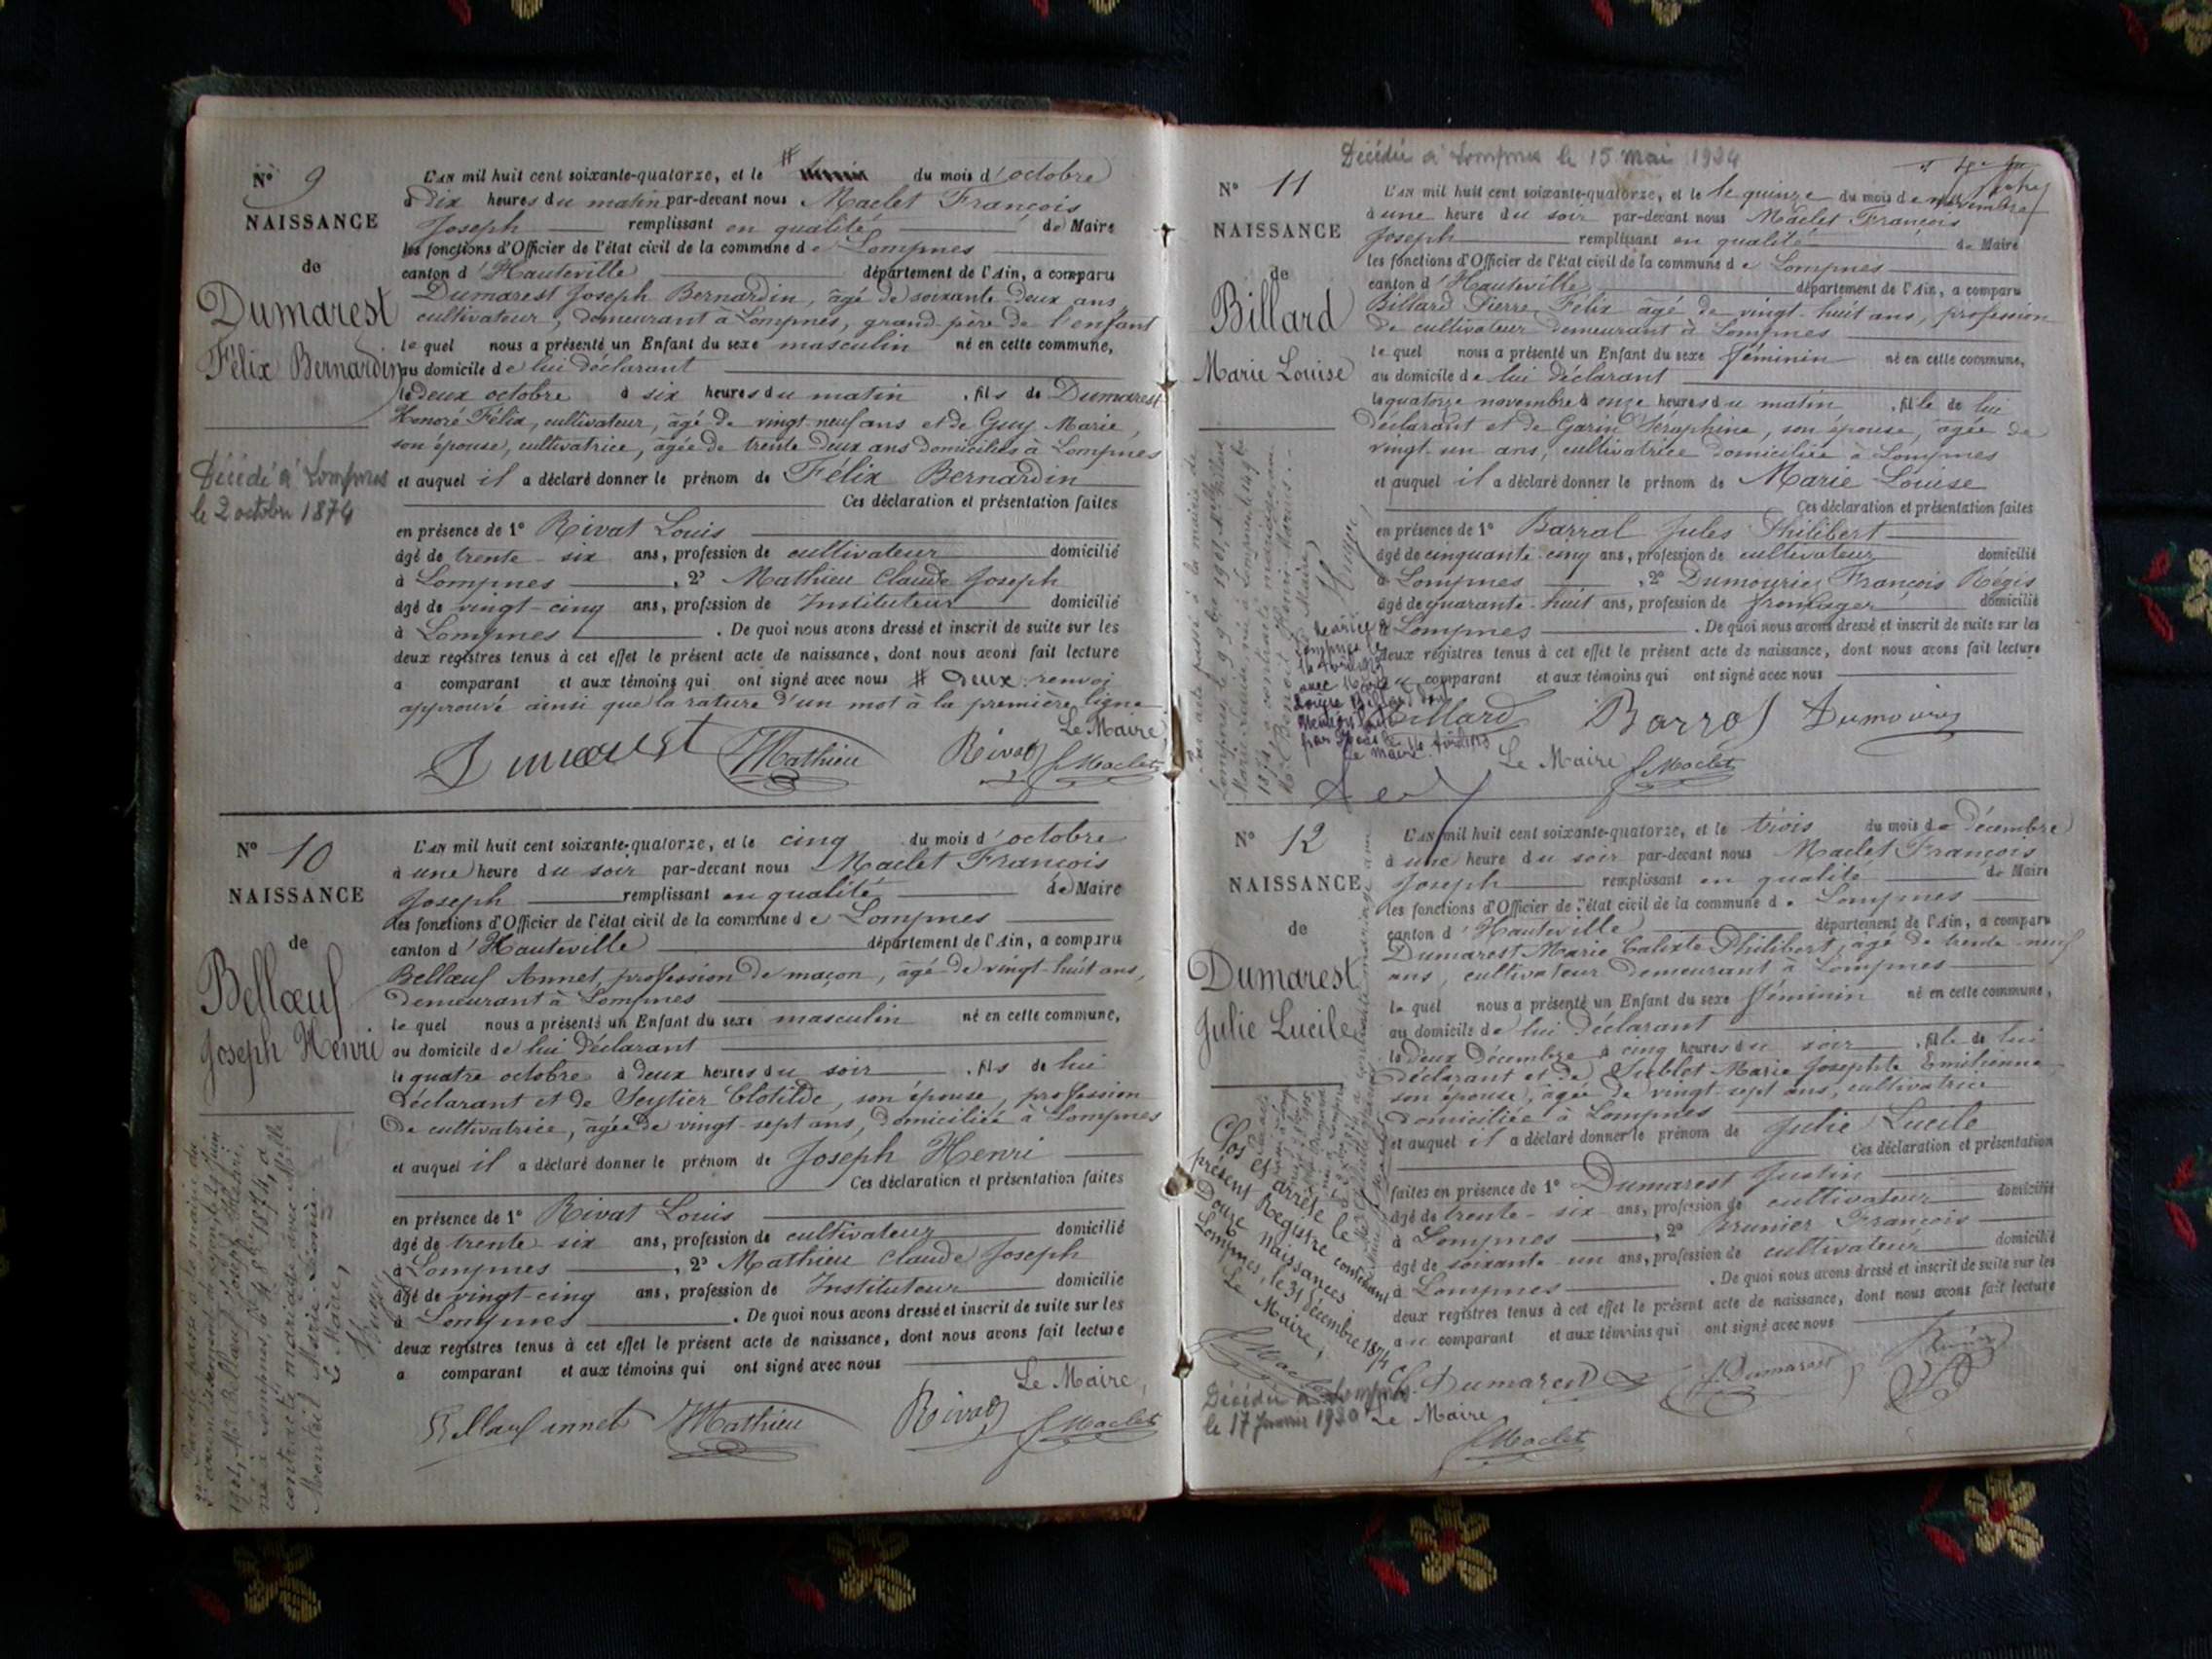 N° 9
NAISSANCE
de
Dumarest
Félix Bernardin
Décédé à Lompnes
le 2 octobre 1874
L'AN mil huit cent soixante-quatorze, et le # du mois d'octobre
à dix heures du matin par-devant nous Maclet François
Joseph remplissant en qualité de Maire
les fonctions d'Officier de l'état civil de la commune de Lompnes
canton d'Hauteville département de l'Ain, a comparu
Dumarest Joseph Bernardin, âgé de soixante-deux ans,
cultivateur, demeurant à Lompnes, grand-père de l'enfant
lequel nous a présenté un Enfant du sexe masculin né en cette commune,
au domicile de lui déclarant
le deux octobre à six heures du matin, fils de Dumarest
Honoré Félix, cultivateur, âgé de vingt-neuf ans et de Guy Marie,
son épouse, cultivatrice, âgée de trente-deux ans domiciliés à Lompnes
et auquel il a déclaré donner le prénom de Félix Bernardin
Ces déclaration et présentation faites
en présence de 1° Rivat Louis
âgé de trente-six ans, profession de cultivateur domicilié
à Lompnes, 2° Mathieu Claude Joseph
âgé de vingt-cinq ans, profession de Instituteur domicilié
à Lompnes. De quoi nous avons dressé et inscrit de suite sur les
deux registres tenus à cet effet le présent acte de naissance, dont nous avons fait lecture
a comparant et aux témoins qui ont signé avec nous # deux: renvoi
approuvé ainsi que la rature d'un mot à la première ligne
Le Maire
Dumarest Mathieu Rivat J Maclet
N° 10
NAISSANCE
de
Bellœuf
Joseph Henri
L'AN mil huit cent soixante-quatorze, et le cinq du mois d'octobre
à une heure du soir par-devant nous Maclet François
Joseph remplissant en qualité de Maire
les fonctions d'Officier de l'état civil de la commune de Lompnes
canton d'Hauteville département de l'Ain, a comparu
Bellœuf Annet, profession de maçon, âgé de vingt-huit ans,
demeurant à Lompnes
lequel nous a présenté un Enfant du sexe masculin né en cette commune,
au domicile de lui déclarant
le quatre octobre à deux heures du soir, fils de lui
déclarant et de Seytier Clotilde, son épouse, profession
de cultivatrice, âgée de vingt-sept ans, domiciliée à Lompnes
et auquel il a déclaré donner le prénom de Joseph Henri
Ces déclaration et présentation faites
en présence de 1° Rivat Louis
âgé de trente-six ans, profession de cultivateur domicilié
à Lompnes, 2° Mathieu Claude Joseph
âgé de vingt-cinq ans, profession de Instituteur domicilié
à Lompnes. De quoi nous avons dressé et inscrit de suite sur les
deux registres tenus à cet effet le présent acte de naissance, dont nous avons fait lecture
a comparant et aux témoins qui ont signé avec nous
Le Maire,
Bellœuf annet Mathieu Rivat J Maclet
contracté mariage avec Melle
Le Maire,
Décédée à Lompnes le 15 mai 1934
N° 11
NAISSANCE
de
Billard
Marie Louise
L'AN mil huit cent soixante-quatorze, et le le quinze du mois de novembre
à une heure du soir par-devant nous Maclet François
Joseph remplissant en qualité de Maire
les fonctions d'Officier de l'état civil de la commune de Lompnes
canton d'Hauteville département de l'Ain, a comparu
Billard Pierre Félix âgé de vingt-huit ans, profession
de cultivateur demeurant à Lompnes
lequel nous a présenté un Enfant du sexe féminin né en cette commune,
au domicile de lui déclarant
le quatorze novembre à onze heures du matin, fille de lui
déclarant et de Garin Séraphine, son épouse, âgée de
vingt-un ans, cultivatrice domiciliée à Lompnes
et auquel il a déclaré donner le prénom de Marie Louise
Ces déclaration et présentation faites
en présence de 1° Barral Jules Philibert
âgé de cinquante-cinq ans, profession de cultivateur domicilié
à Lompnes, 2° Dumouriez François Régis
âgé de quarante-huit ans, profession de fromager domicilié
à Lompnes. De quoi nous avons dressé et inscrit de suite sur les
deux registres tenus à cet effet le présent acte de naissance, dont nous avons fait lecture
au comparant et aux témoins qui ont signé avec nous
Billard Barral Dumouriez
Le Maire J Maclet
N° 12
NAISSANCE
de
Dumarest
Julie Lucile
L'AN mil huit cent soixante-quatorze, et le trois du mois de décembre
à une heure du soir par-devant nous Maclet François
Joseph remplissant en qualité de Maire
les fonctions d'Officier de l'état civil de la commune de Lompnes
canton d'Hauteville département de l'Ain, a comparu
Dumarest Marie Calixte Philibert, âgé de trente-neuf
ans, cultivateur demeurant à Lompnes
lequel nous a présenté un Enfant du sexe féminin né en cette commune,
au domicile de lui déclarant
le deux décembre à cinq heures du soir, fille de lui
déclarant et de Marie Josephte Emilienne
son épouse, âgée de vingt-sept ans, cultivatrice
domiciliée à Lompnes
et auquel il a déclaré donner le prénom de Julie Lucile
Ces déclaration et présentation
faites en présence de 1° Dumarest Justin
âgé de trente-six ans, profession de cultivateur domicilié
à Lompnes, 2° Brunier François
âgé de soixante-un ans, profession de cultivateur domicilié
à Lompnes. De quoi nous avons dressé et inscrit de suite sur les
deux registres tenus à cet effet le présent acte de naissance, dont nous avons fait lecture
au comparant et aux témoins qui ont signé avec nous
Dumarest J Dumarest
Le Maire
J Maclet
Clos et arrêté le
présent Registre contenant
Douze Naissances
Lompnes, le 31 décembre 1874
Le Maire,
J Maclet
Décédée à Lompnes
le 17 Janvier 1920